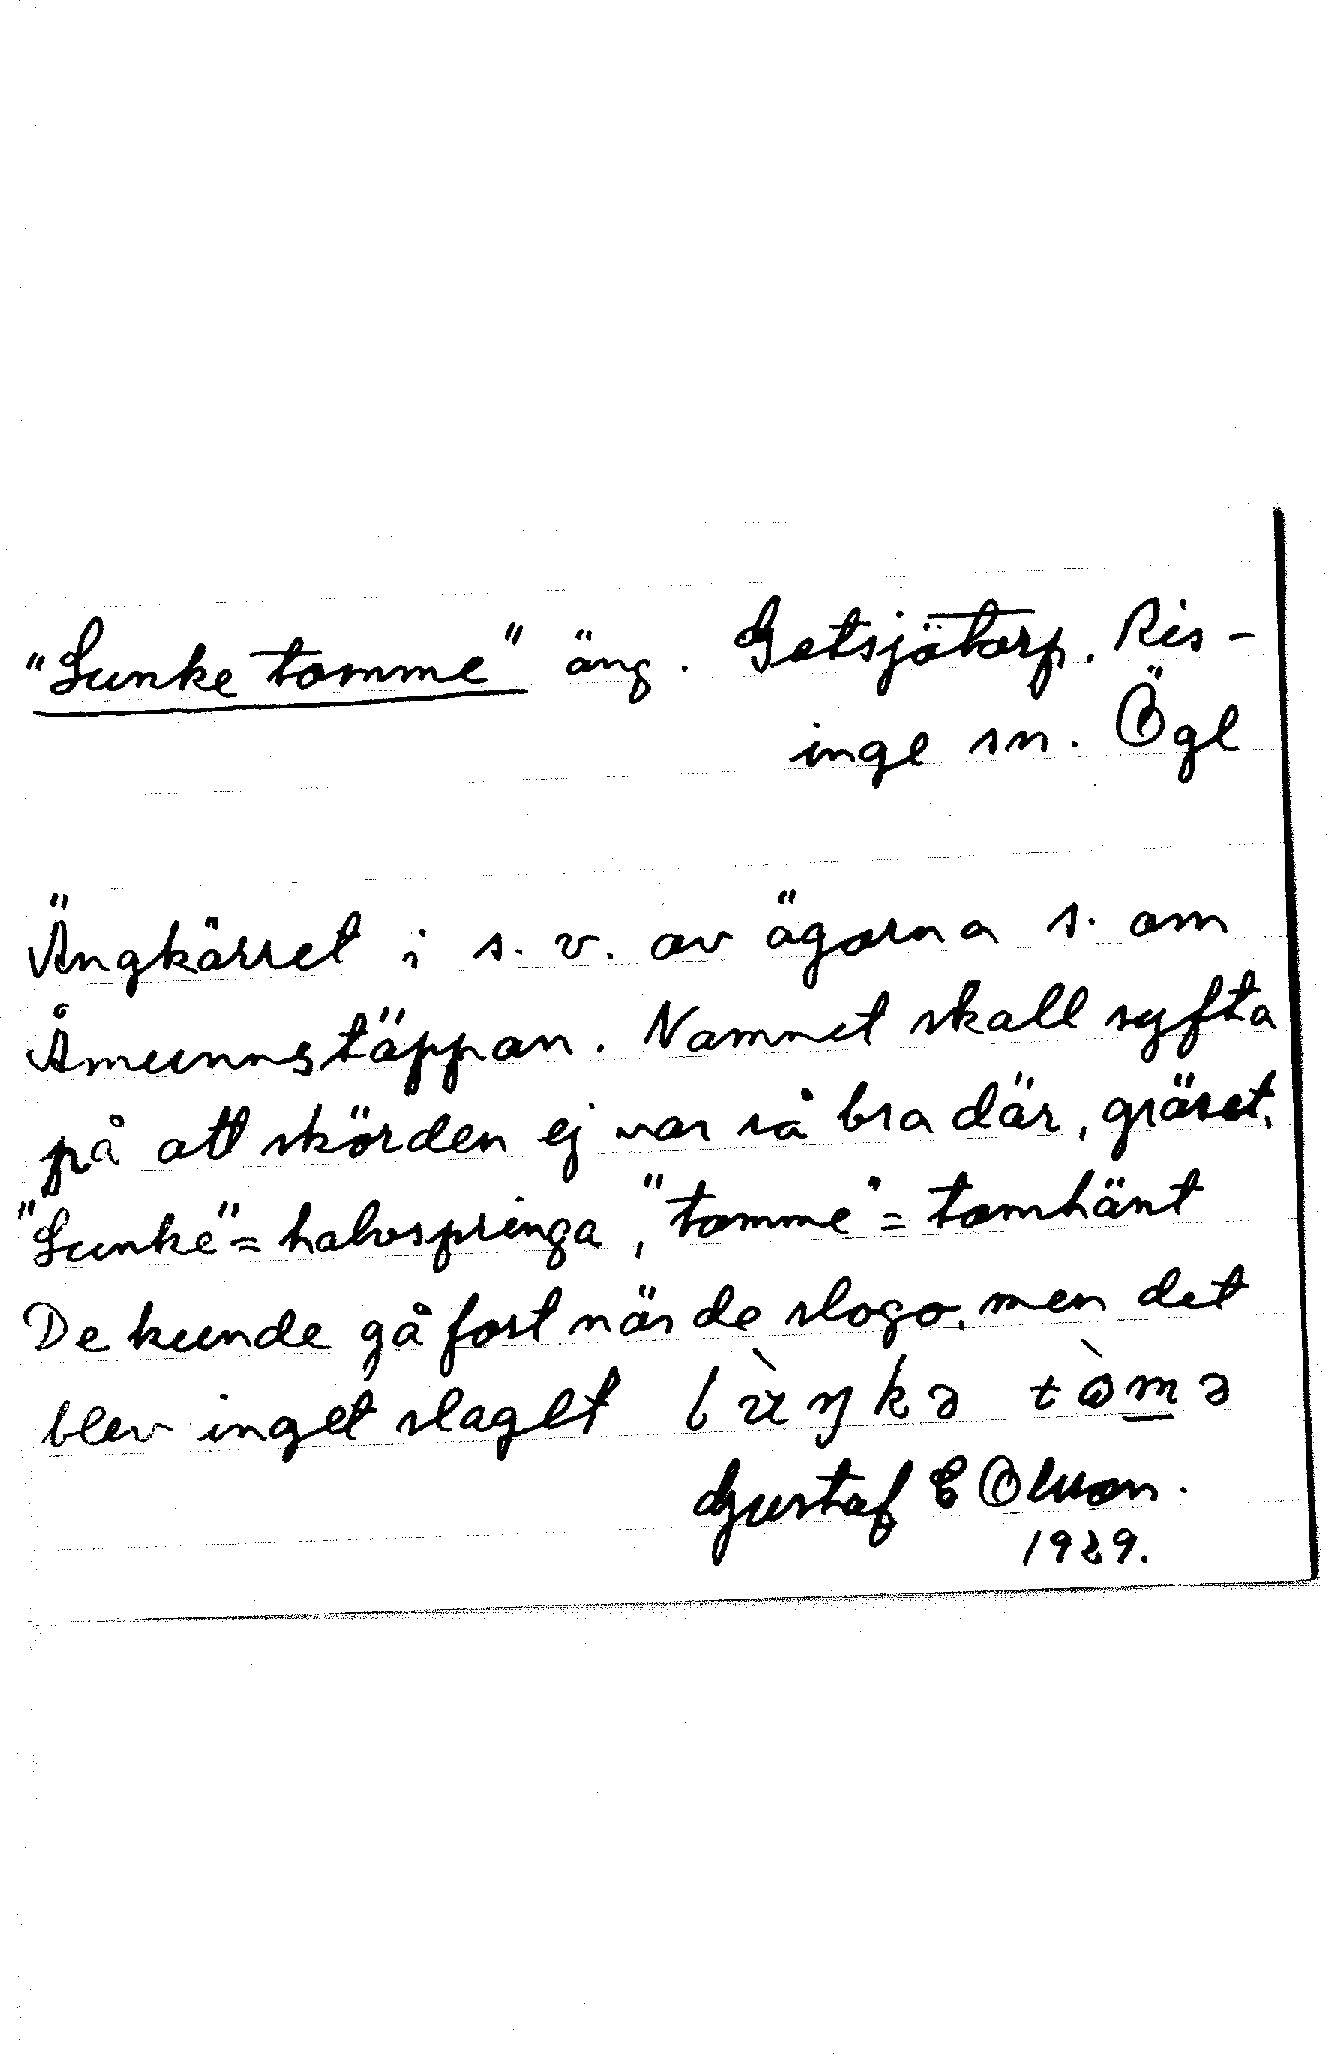 "Lunke tomme" äng. Getsjötorp. Ris-
inge sn. Ögl
Ängkärret i s. v. av ägorna s. om
Åmunnstäppan. Namnet skall syfta
på att skörden ej var så bra där, gräset.
"Lunke" = halvspringa, "tomme" = tomhänt
De kunde gå fort när de slogo. men det
blev inget slaget lùŋkə tòmə
Gustaf E Olsson.
1929.